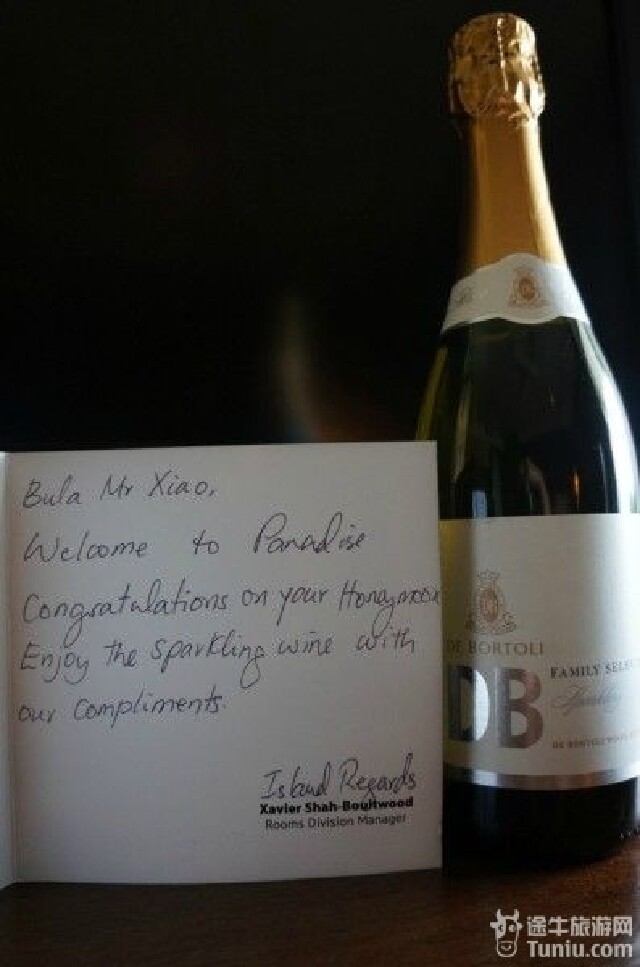 Bula Mr Xiao,
Welcome to Paradise
Congratulations on your Honeymoon
Enjoy the sparkling wine with
our compliments.
Island Regards
Xavier Shah-Boultwood
Rooms Division Manager
DE BORTOLI
DB
FAMILY SELEC
途牛旅游网
Tuniu.com